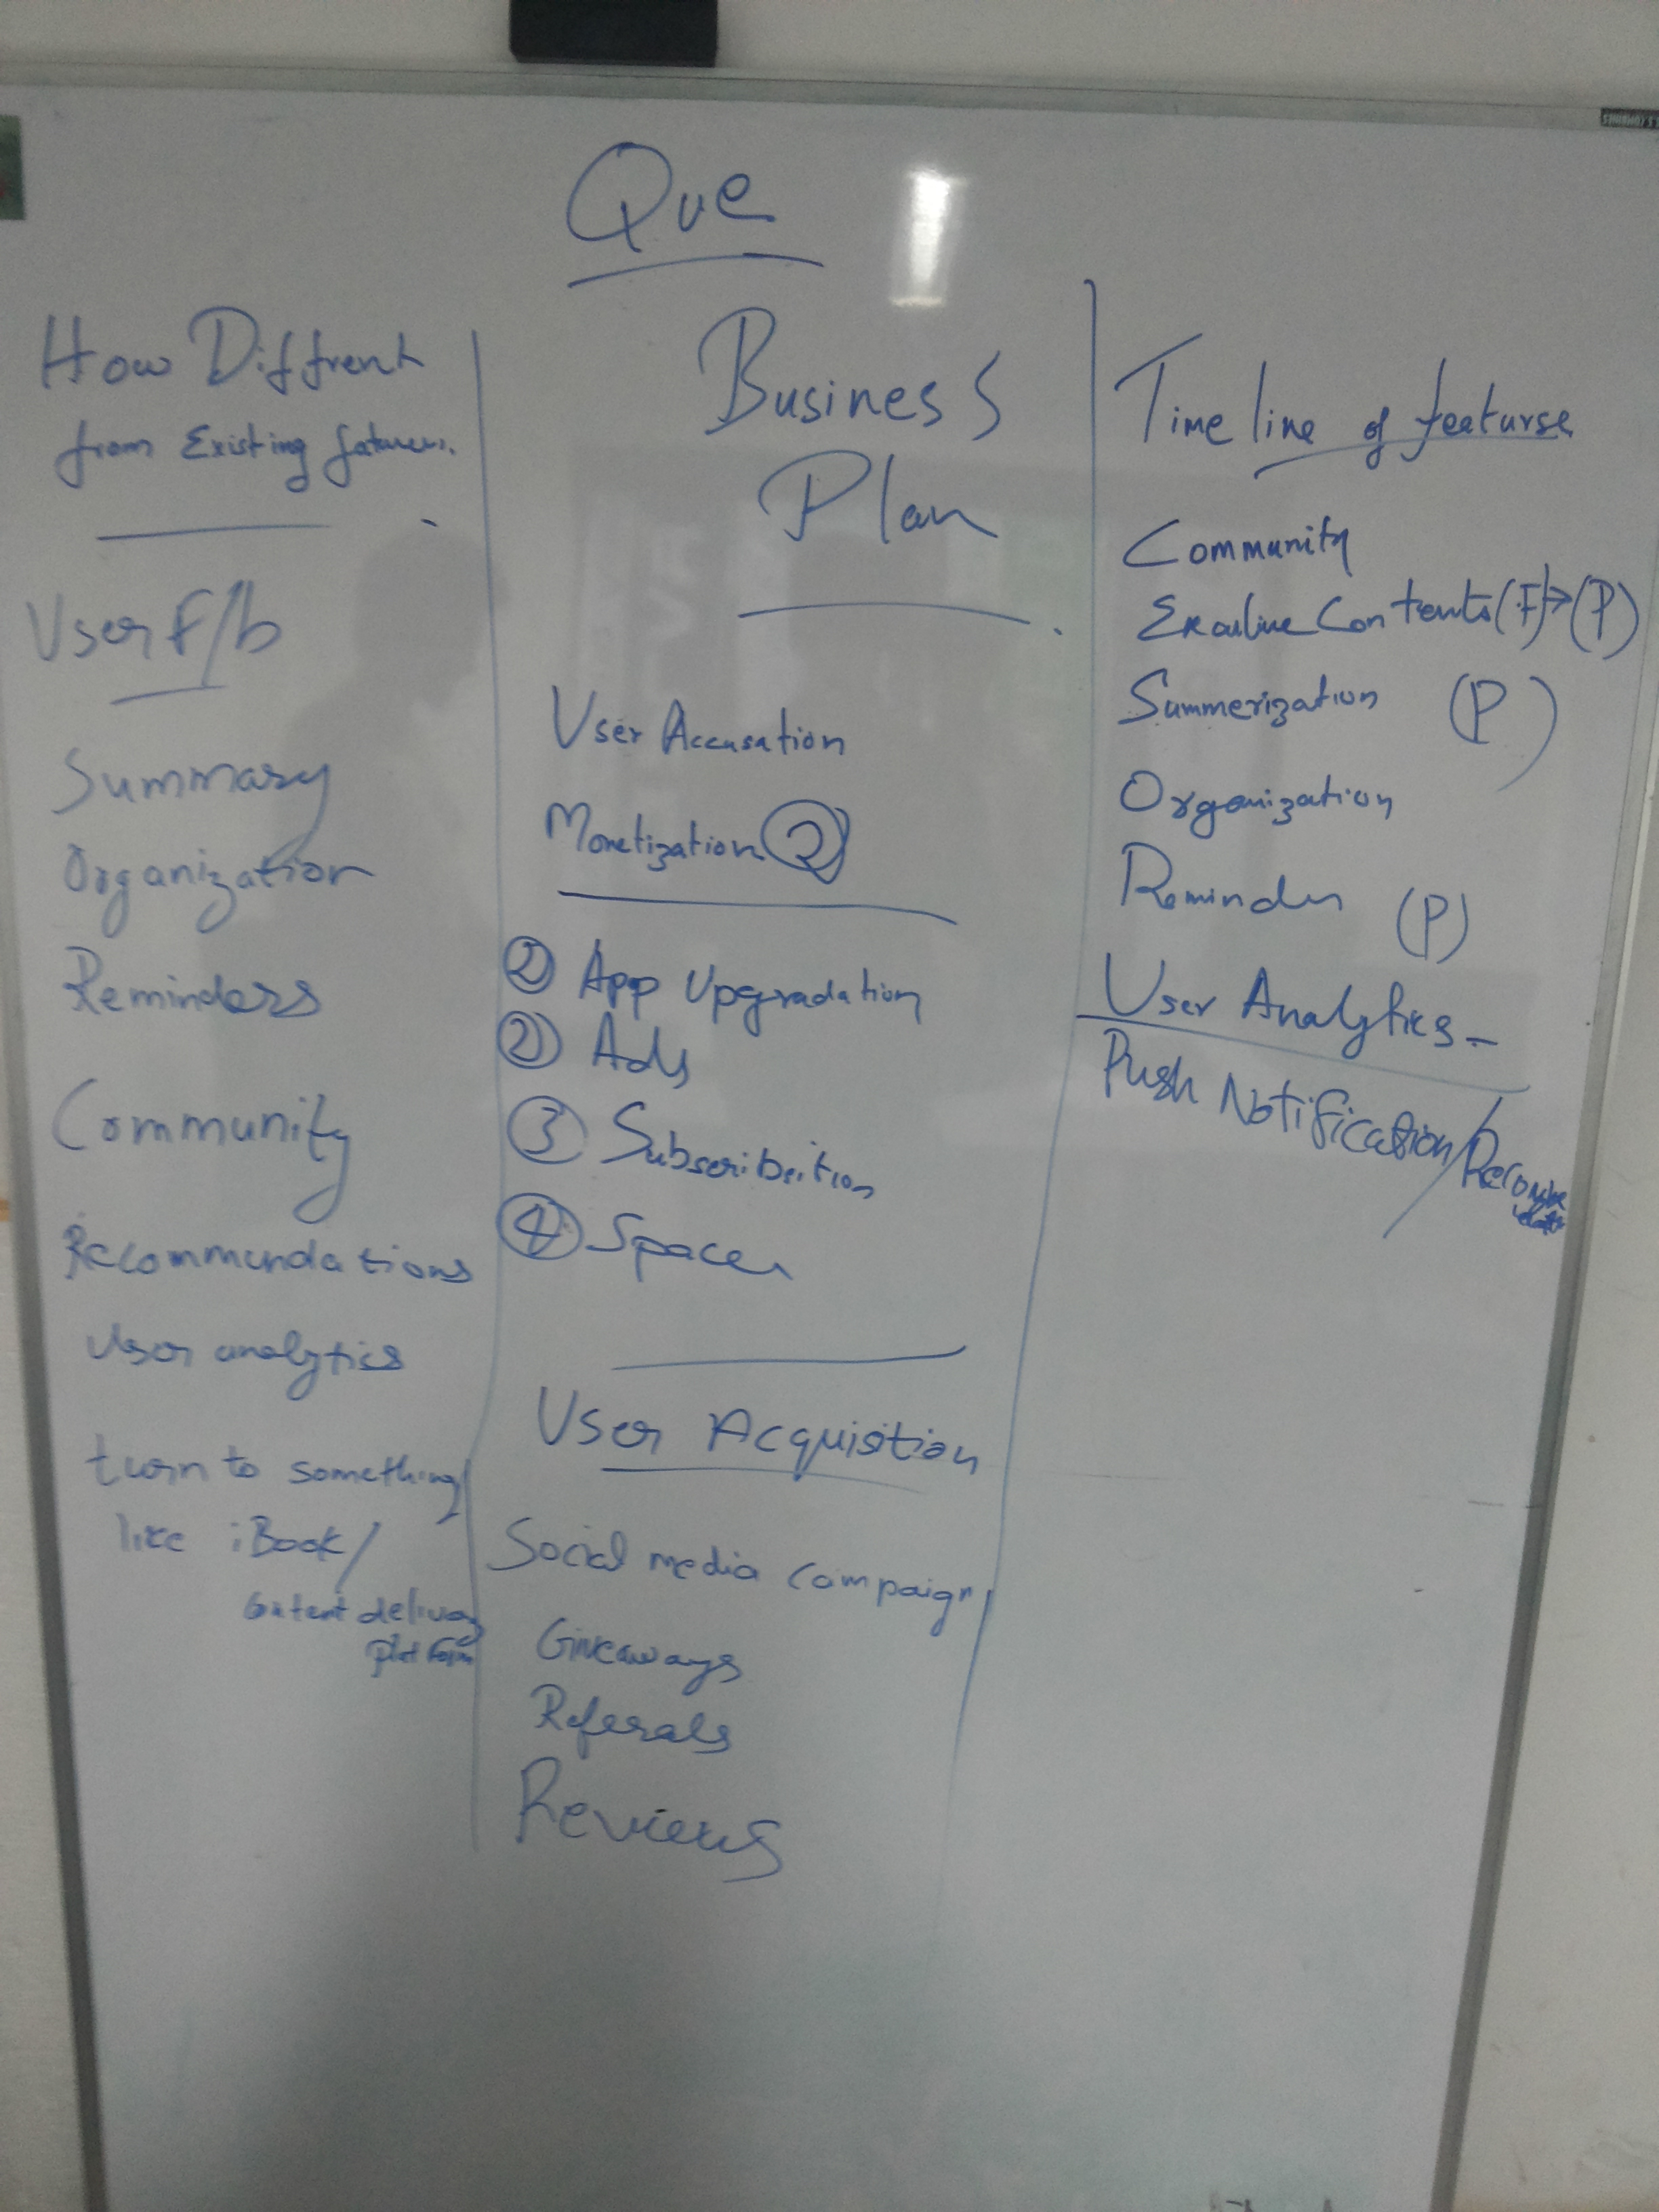 Que
How Diffrent
from Existing fatures.
User F/b
Summary
Organization
Reminders
Community
Recommendations
User analytics
turn to something
like iBook/
Content delivery
platform
Business
Plan
User Accusation
Monetization ②
② App Upgradation
② Ads
③ Subscribsition
④ Spaces
User Acquistion
Social media campaign
Giveaways
Referals
Reviews
Time line of featurse
Community
Contents (F)→(P)
Summerization (P)
Organization
Reminder (P)
User Analytics -
Push Notification/